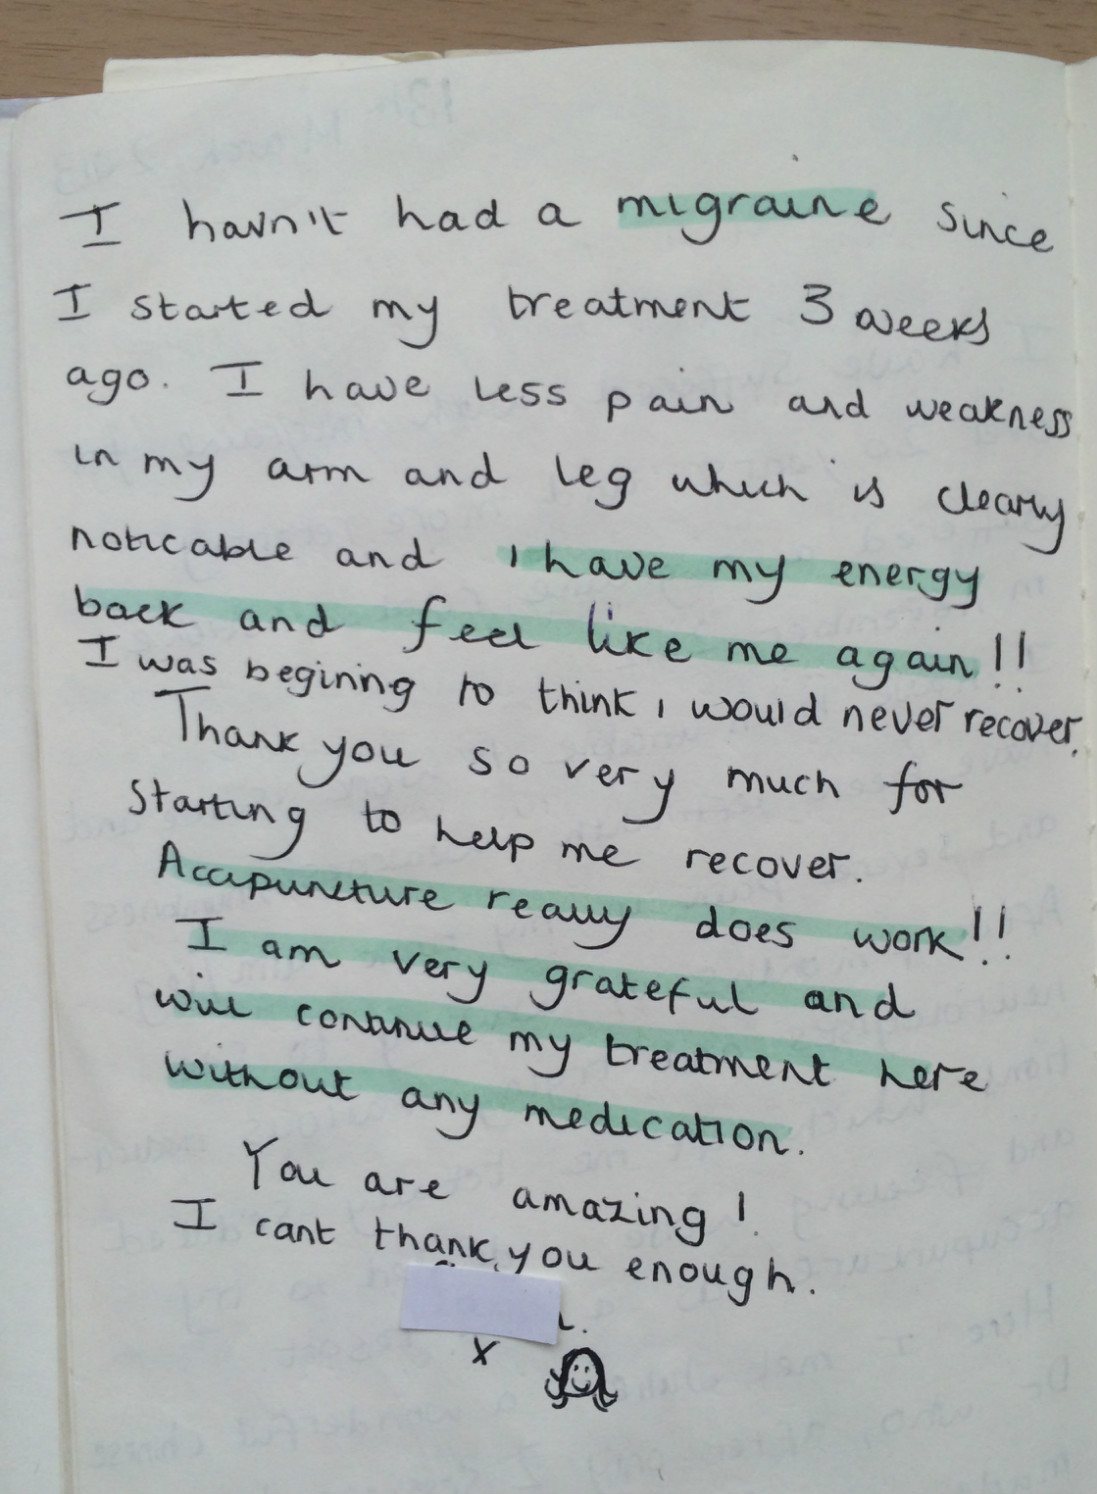 I havn't had a migraine since
I started my treatment 3 weeks
ago. I have less pain and weakness
in my arm and leg which is clearly
noticable and I have my energy
back and feel like me again!!
I was begining to think I would never recover.
Thank you so very much for
starting to help me recover.
Acupuncture really does work!!
I am very grateful and
will continue my treatment here
without any medication.
You are amazing!
I cant thank you enough.
x